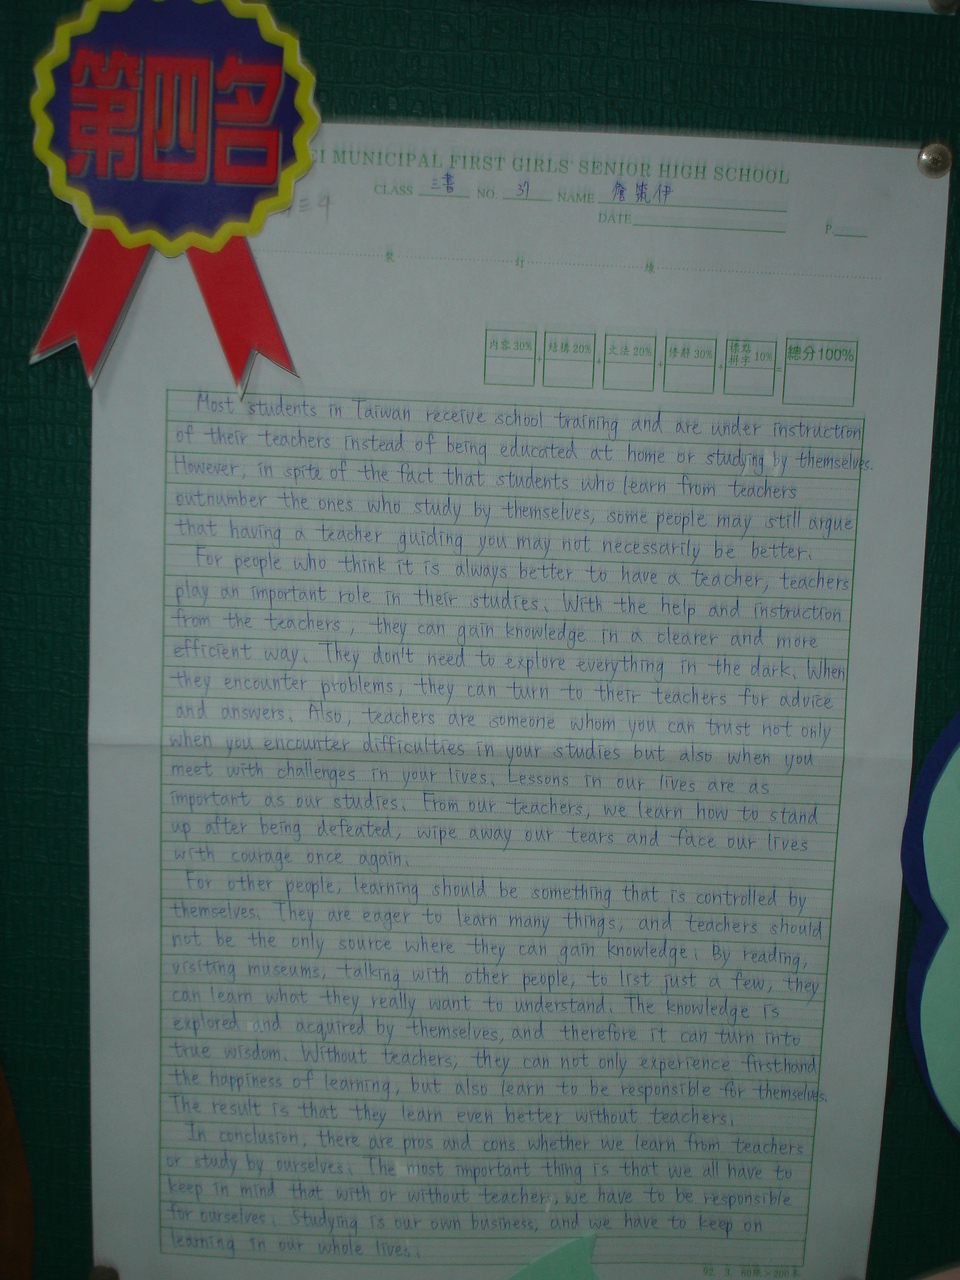 第四名
EI MUNICIPAL FIRST GIRLS' SENIOR HIGH SCHOOL
CLASS 三書 NO. 37 NAME 伊
DATE P.
裝 訂 線
內容30% + 結構20% + 文法20% + 修辭30% + 10% = 總分100%
Most students in Taiwan receive school training and are under instruction
of their teachers instead of being educated at home or studying by themselves.
However, in spite of the fact that students who learn from teachers
outnumber the ones who study by themselves, some people may still argue
that having a teacher guiding you may not necessarily be better.
For people who think it is always better to have a teacher, teachers
play an important role in their studies. With the help and instruction
from the teachers, they can gain knowledge in a clearer and more
efficient way. They don't need to explore everything in the dark. When
they encounter problems, they can turn to their teachers for advice
and answers. Also, teachers are someone whom you can trust not only
when you encounter difficulties in your studies but also when you
meet with challenges in your lives. Lessons in our lives are as
important as our studies. From our teachers, we learn how to stand
up after being defeated, wipe away our tears and face our lives
with courage once again.
For other people, learning should be something that is controlled by
themselves. They are eager to learn many things, and teachers should
not be the only source where they can gain knowledge. By reading,
visiting museums, talking with other people, to list just a few, they
can learn what they really want to understand. The knowledge is
explored and acquired by themselves, and therefore it can turn into
true wisdom. Without teachers, they can not only experience firsthand
the happiness of learning, but also learn to be responsible for themselves.
The result is that they learn even better without teachers.
In conclusion, there are pros and cons whether we learn from teachers
or study by ourselves. The most important thing is that we all have to
keep in mind that with or without teacher, we have to be responsible
for ourselves. Studying is our own business, and we have to keep on
learning in our whole lives.